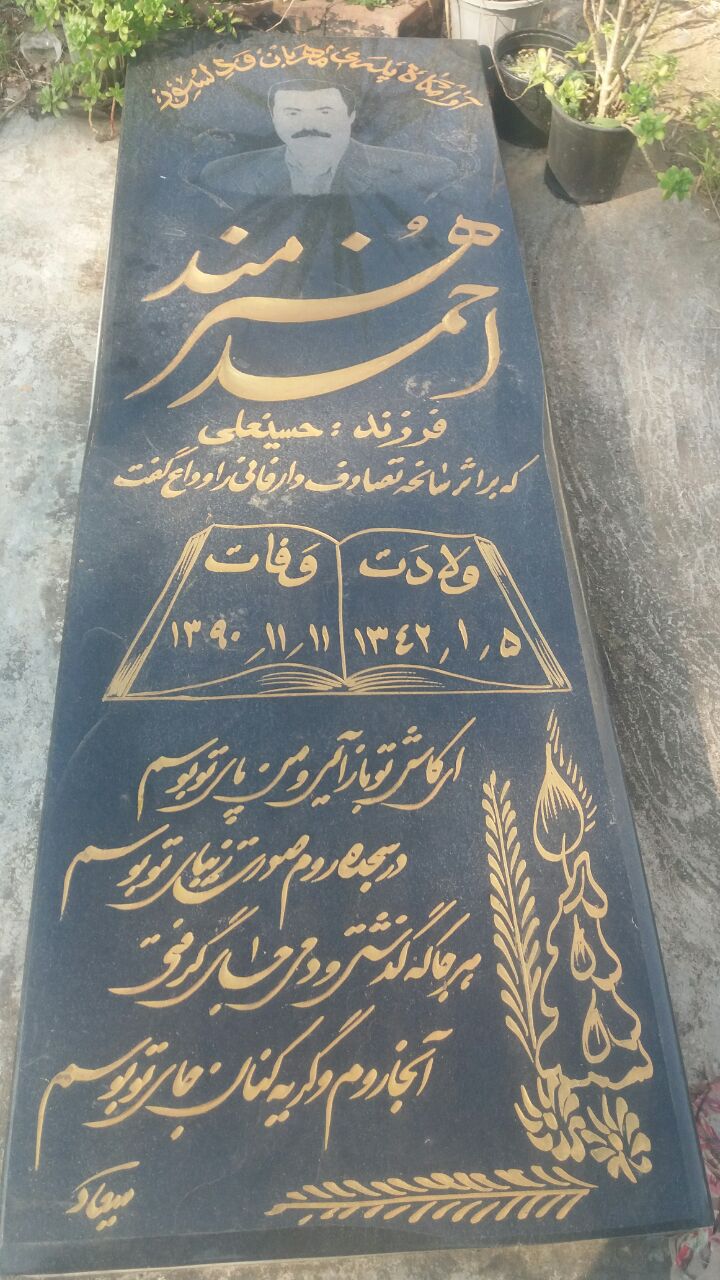 آرامگاه پدری مهربان و دلسوز
هنرمند
احمد
فرزند : حسینعلی
که بر اثر سانحه تصادف دار فانی را وداع گفت
ولادت وفات
۱۳۴۲/۱/۵ ۱۳۹۰/۱۱/۱۱
ای کاش تو باز آئی و من پای تو بوسم
در سجده روم صورت زیبای تو بوسم
هر جا که گذشتی و دمی جای گرفتی
آنجا روم و گریه کنان جای تو بوسم